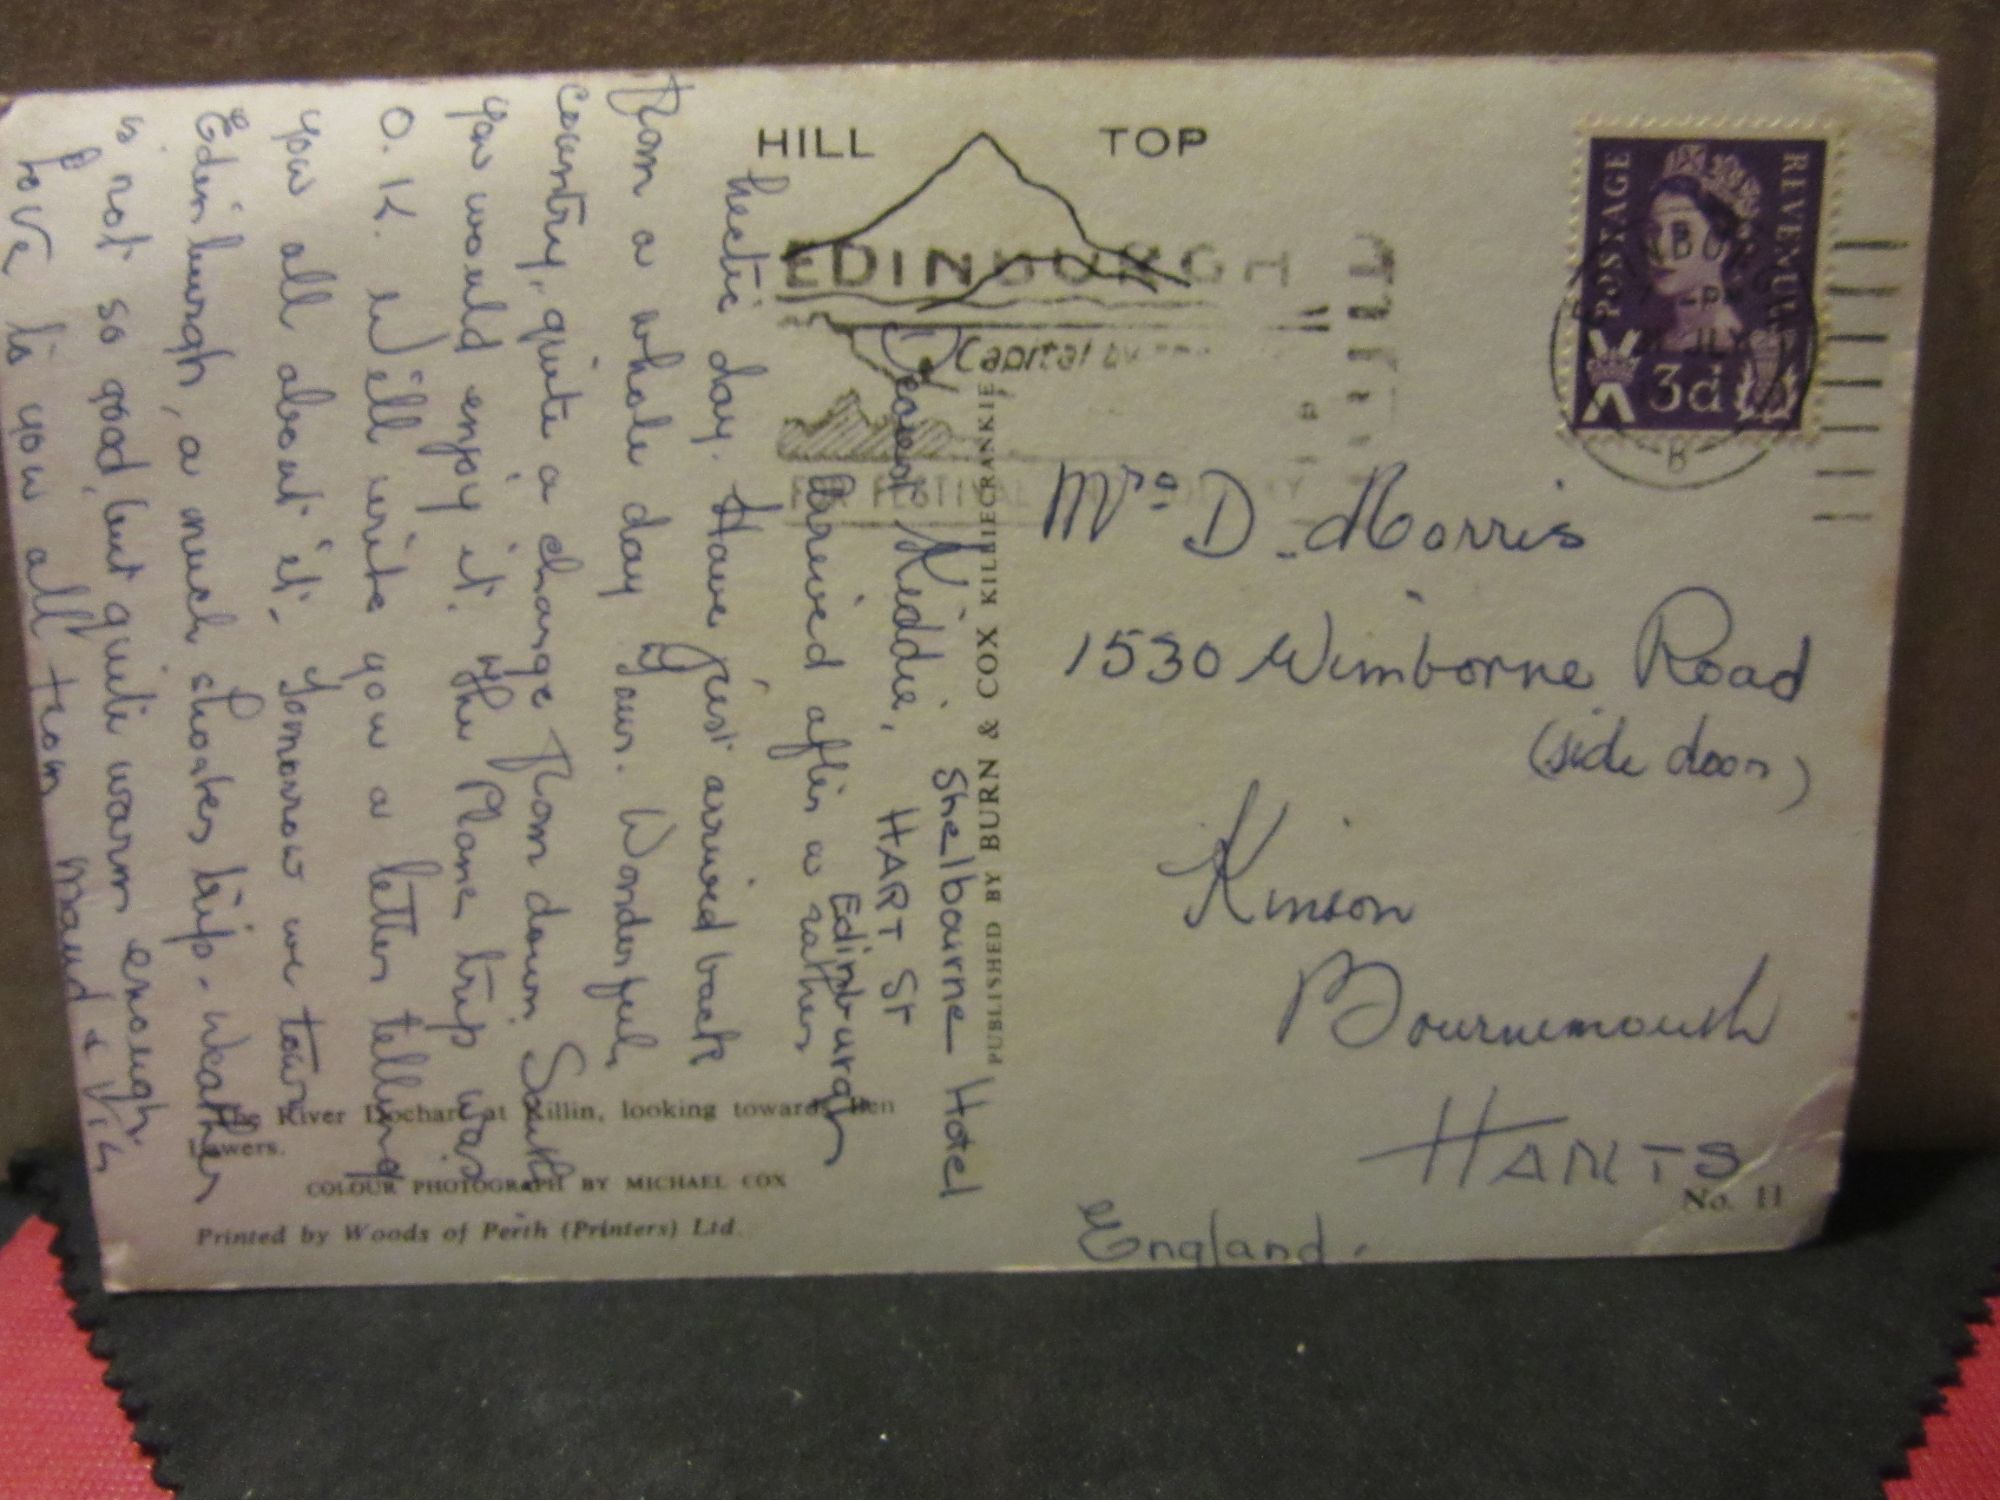 HILL TOP
EDINBURGH
Capital
FESTIVAL
POSTAGE REVENUE
3d
PM
JLY
B
Shelbourne Hotel
HART St
Edinburgh
Dearest Kiddie,
Arrived after a rather
hectic day. Have just arrived back
from a whole day Tour. Wonderful
country, quite a change from down South
you would enjoy it. The Plane trip was
O.K. Will write you a letter telling
you all about it. Tomorrow we tour
Edinburgh, a much shorter trip. Weather
is not so good, but quite warm enough.
Love to you all from Maud & Vic
PUBLISHED BY BURN & COX KILLIECRANKIE
Mrs D. Morris
1530 Wimborne Road
(side door)
Kinson
Bournemouth
HANTS
England.
The River Dochart at Killin, looking towards Ben
Lawers.
COLOUR PHOTOGRAPH BY MICHAEL COX
Printed by Woods of Perth (Printers) Ltd.
No. 11